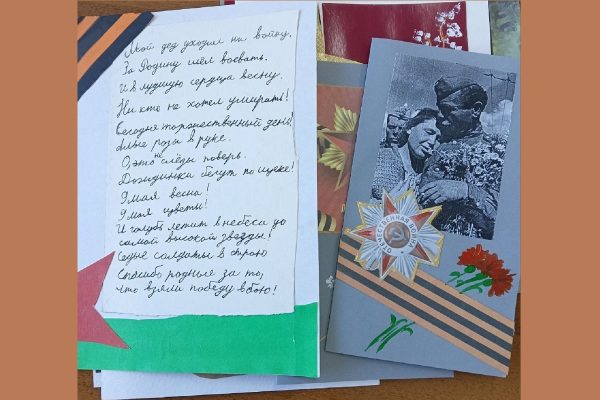 Мой дед уходил на войну.
За Родину шёл воевать.
И в лучшую сердца весну.
Ни кто не хотел умирать!
Сегодня торжественный день!
Алые розы в руке.
О, это не слёзы поверь.
Дождинка бегут по щеке!
9 мая весна!
9 мая цветы!
И голубь летит в небеса до
самой высокой звезды!
Седые солдаты в строю
Спасибо родные за то,
что взяли победу в бою!
ОТЕЧЕСТВЕННАЯ ВОЙНА